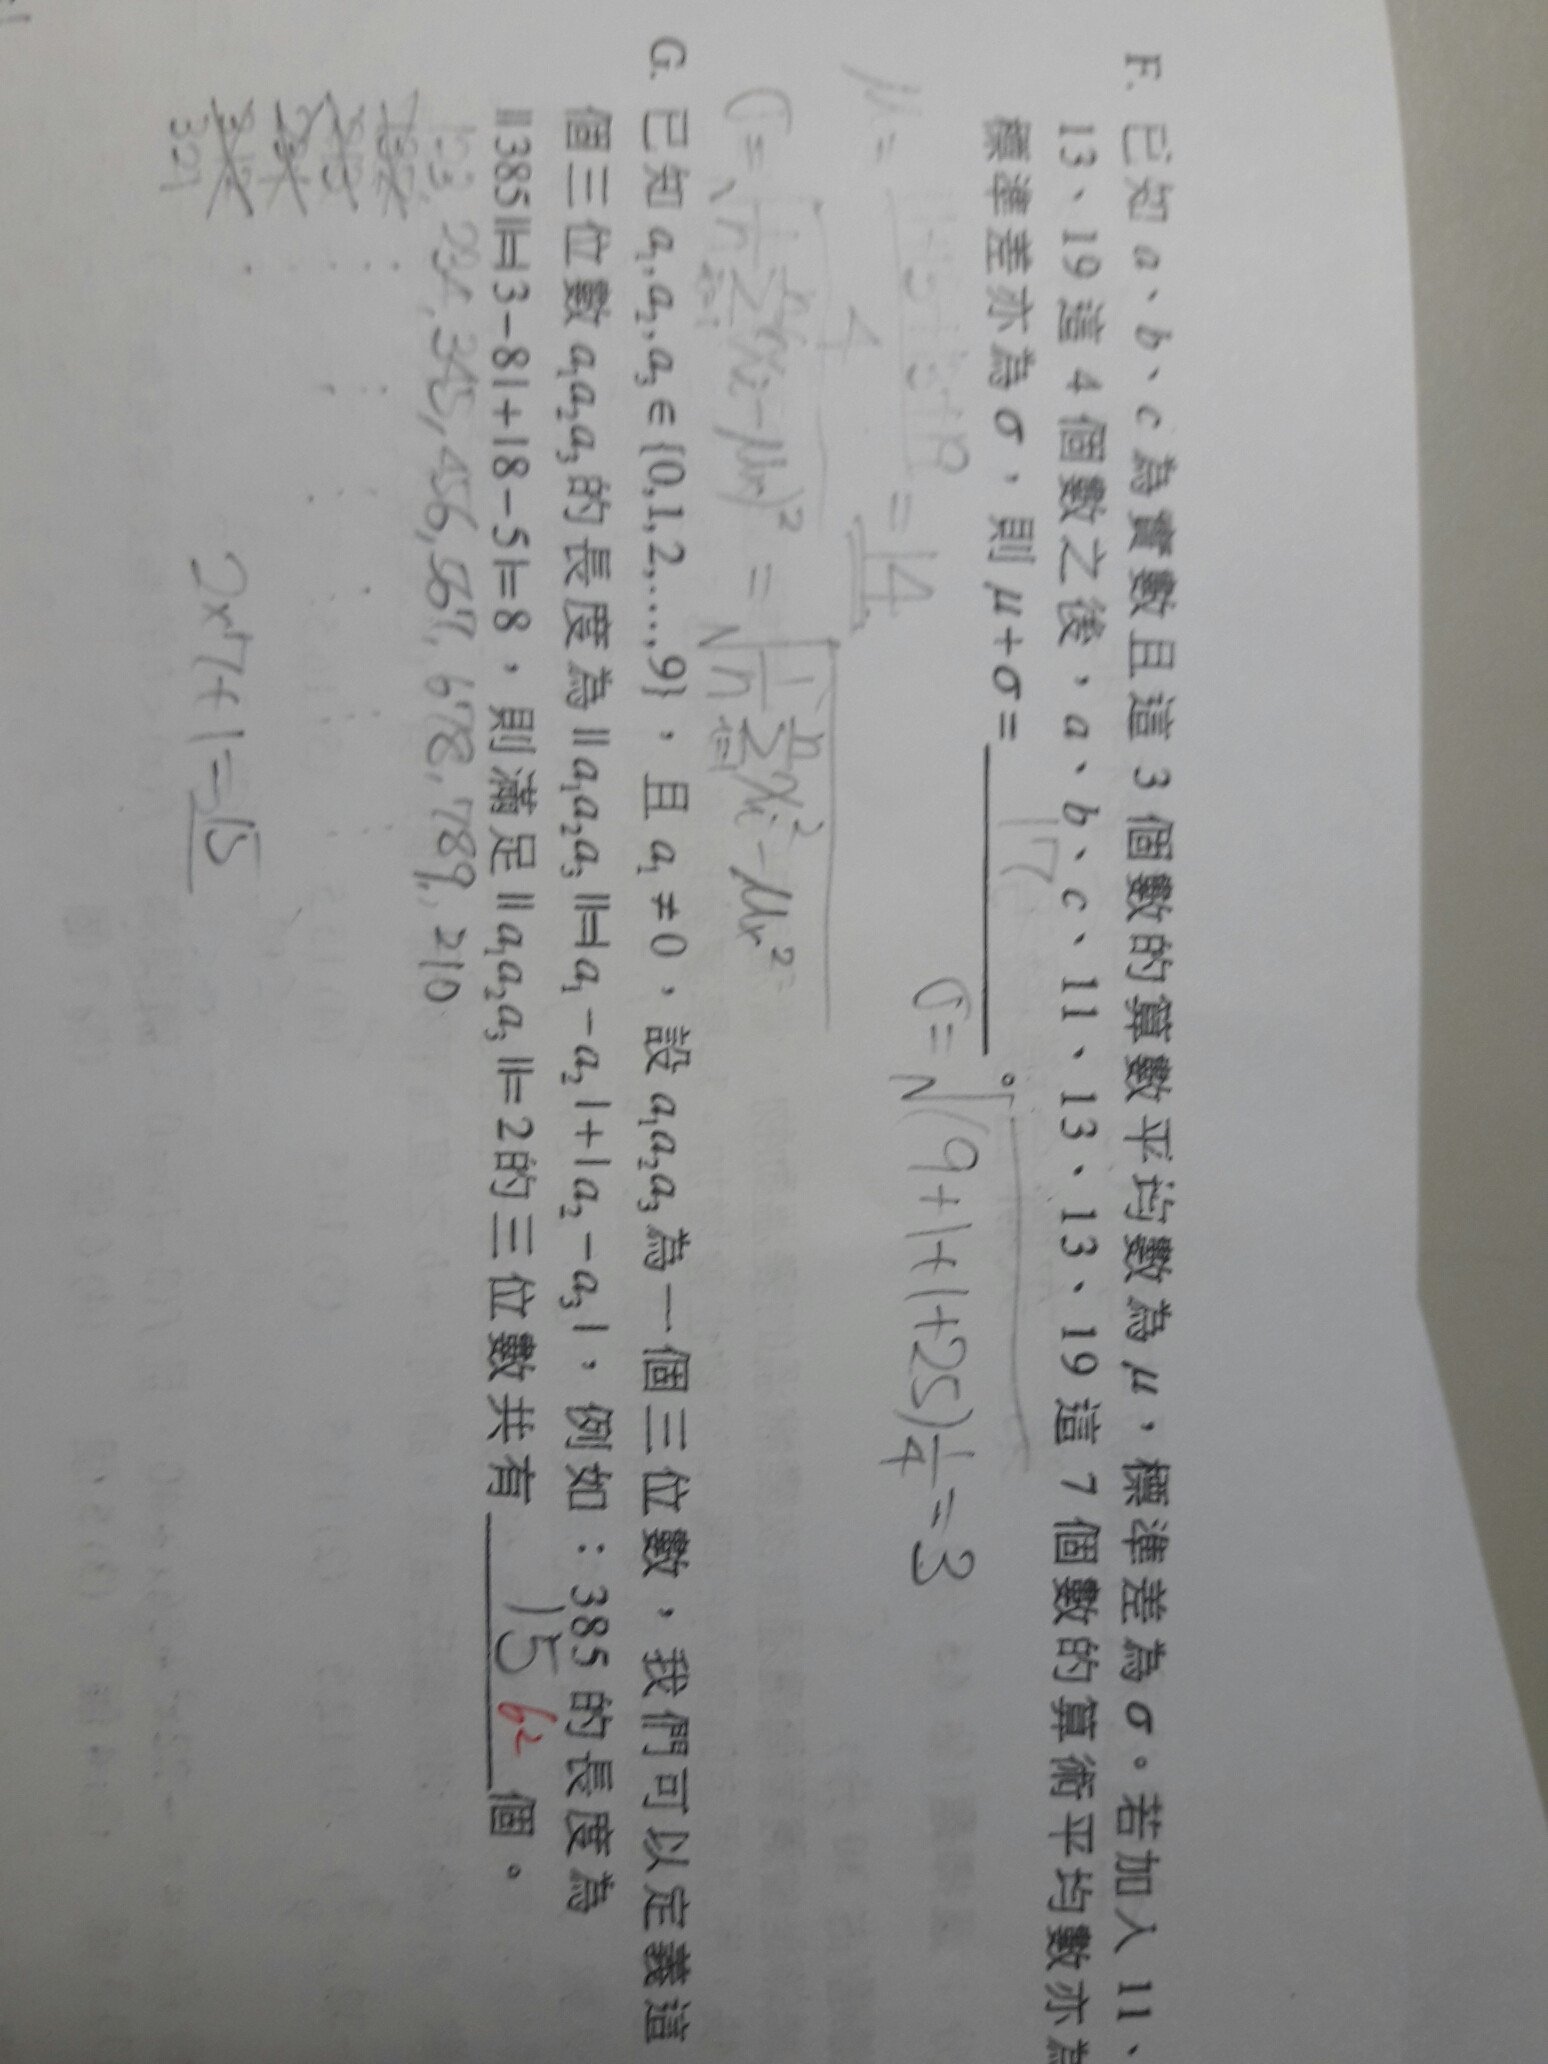 F. 已知 a、b、c 為實數且這 3 個數的算數平均數為 μ，標準差為 σ。若加入 11、
13、19 這 4 個數之後，a、b、c、11、13、13、19 這 7 個數的算術平均數亦為
標準差亦為 σ，則 μ+σ= 17 。
μ= /4 = 14
σ=√(9+1+1+25)1/4 = 3
σ=√1/n Σ(xi-μx)² = √1/n Σxi²-μx²
G. 已知 a₁,a₂,a₃∈{0,1,2,…,9}，且 a₁≠0，設 a₁a₂a₃ 為一個三位數，我們可以定義這
個三位數 a₁a₂a₃ 的長度為 ||a₁a₂a₃||=|a₁-a₂|+|a₂-a₃|，例如：385 的長度為
||385||=|3-8|+|8-5|=8，則滿足 ||a₁a₂a₃||=2 的三位數共有 15 62 個。
123, 234, 345, 456, 567, 678, 789, 210
321
2×7+1=15